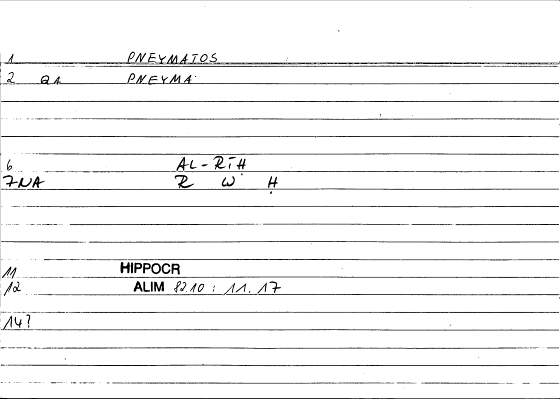 1 PNEYMATOS
2 Q1 PNEYMA
6 AL-RĪḤ
7NA R W Ḥ
11 HIPPOCR
12 ALIM 82.10 : 11.17
14?